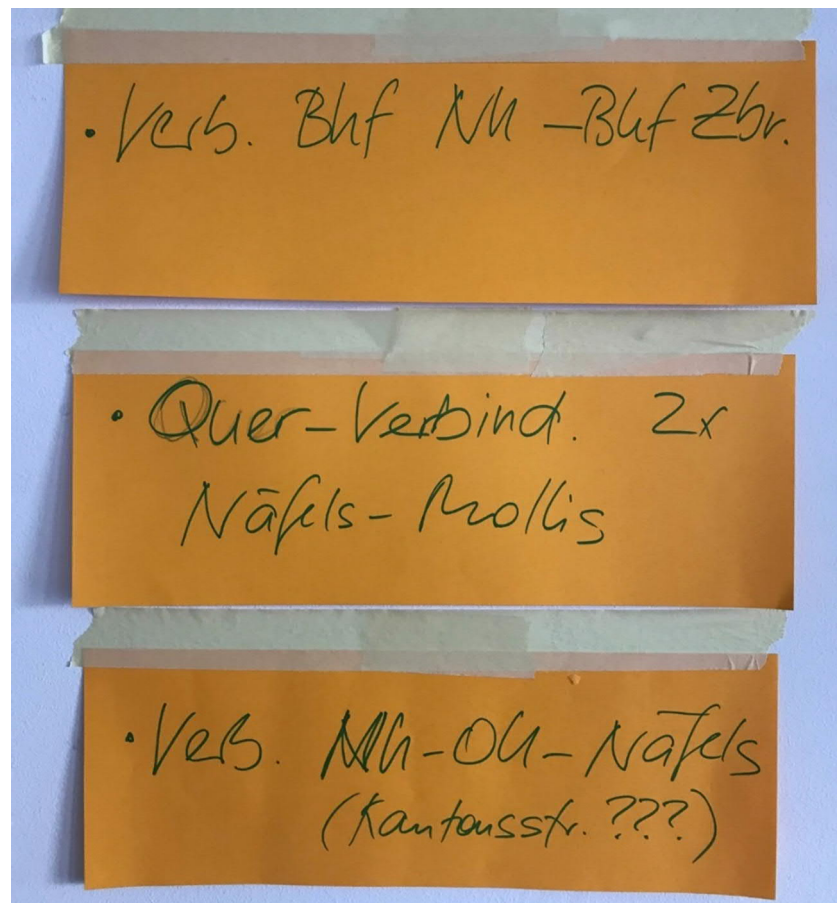 · Verb. Bhf NU – Bhf Zbr.
· Quer-Verbind. 2x
Näfels - Mollis
· Verb. NU - OU - Näfels
(Kantonsstr. ???)